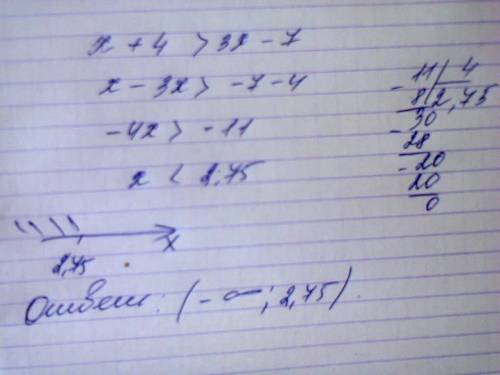 x + 4 > 3x - 7
x - 3x > -7 - 4
-4x > -11
x < 2,75
2,75 x
Ответ: (-∞; 2,75).
- 11 | 4
8 | 2,75
- 30
28
- 20
20
0